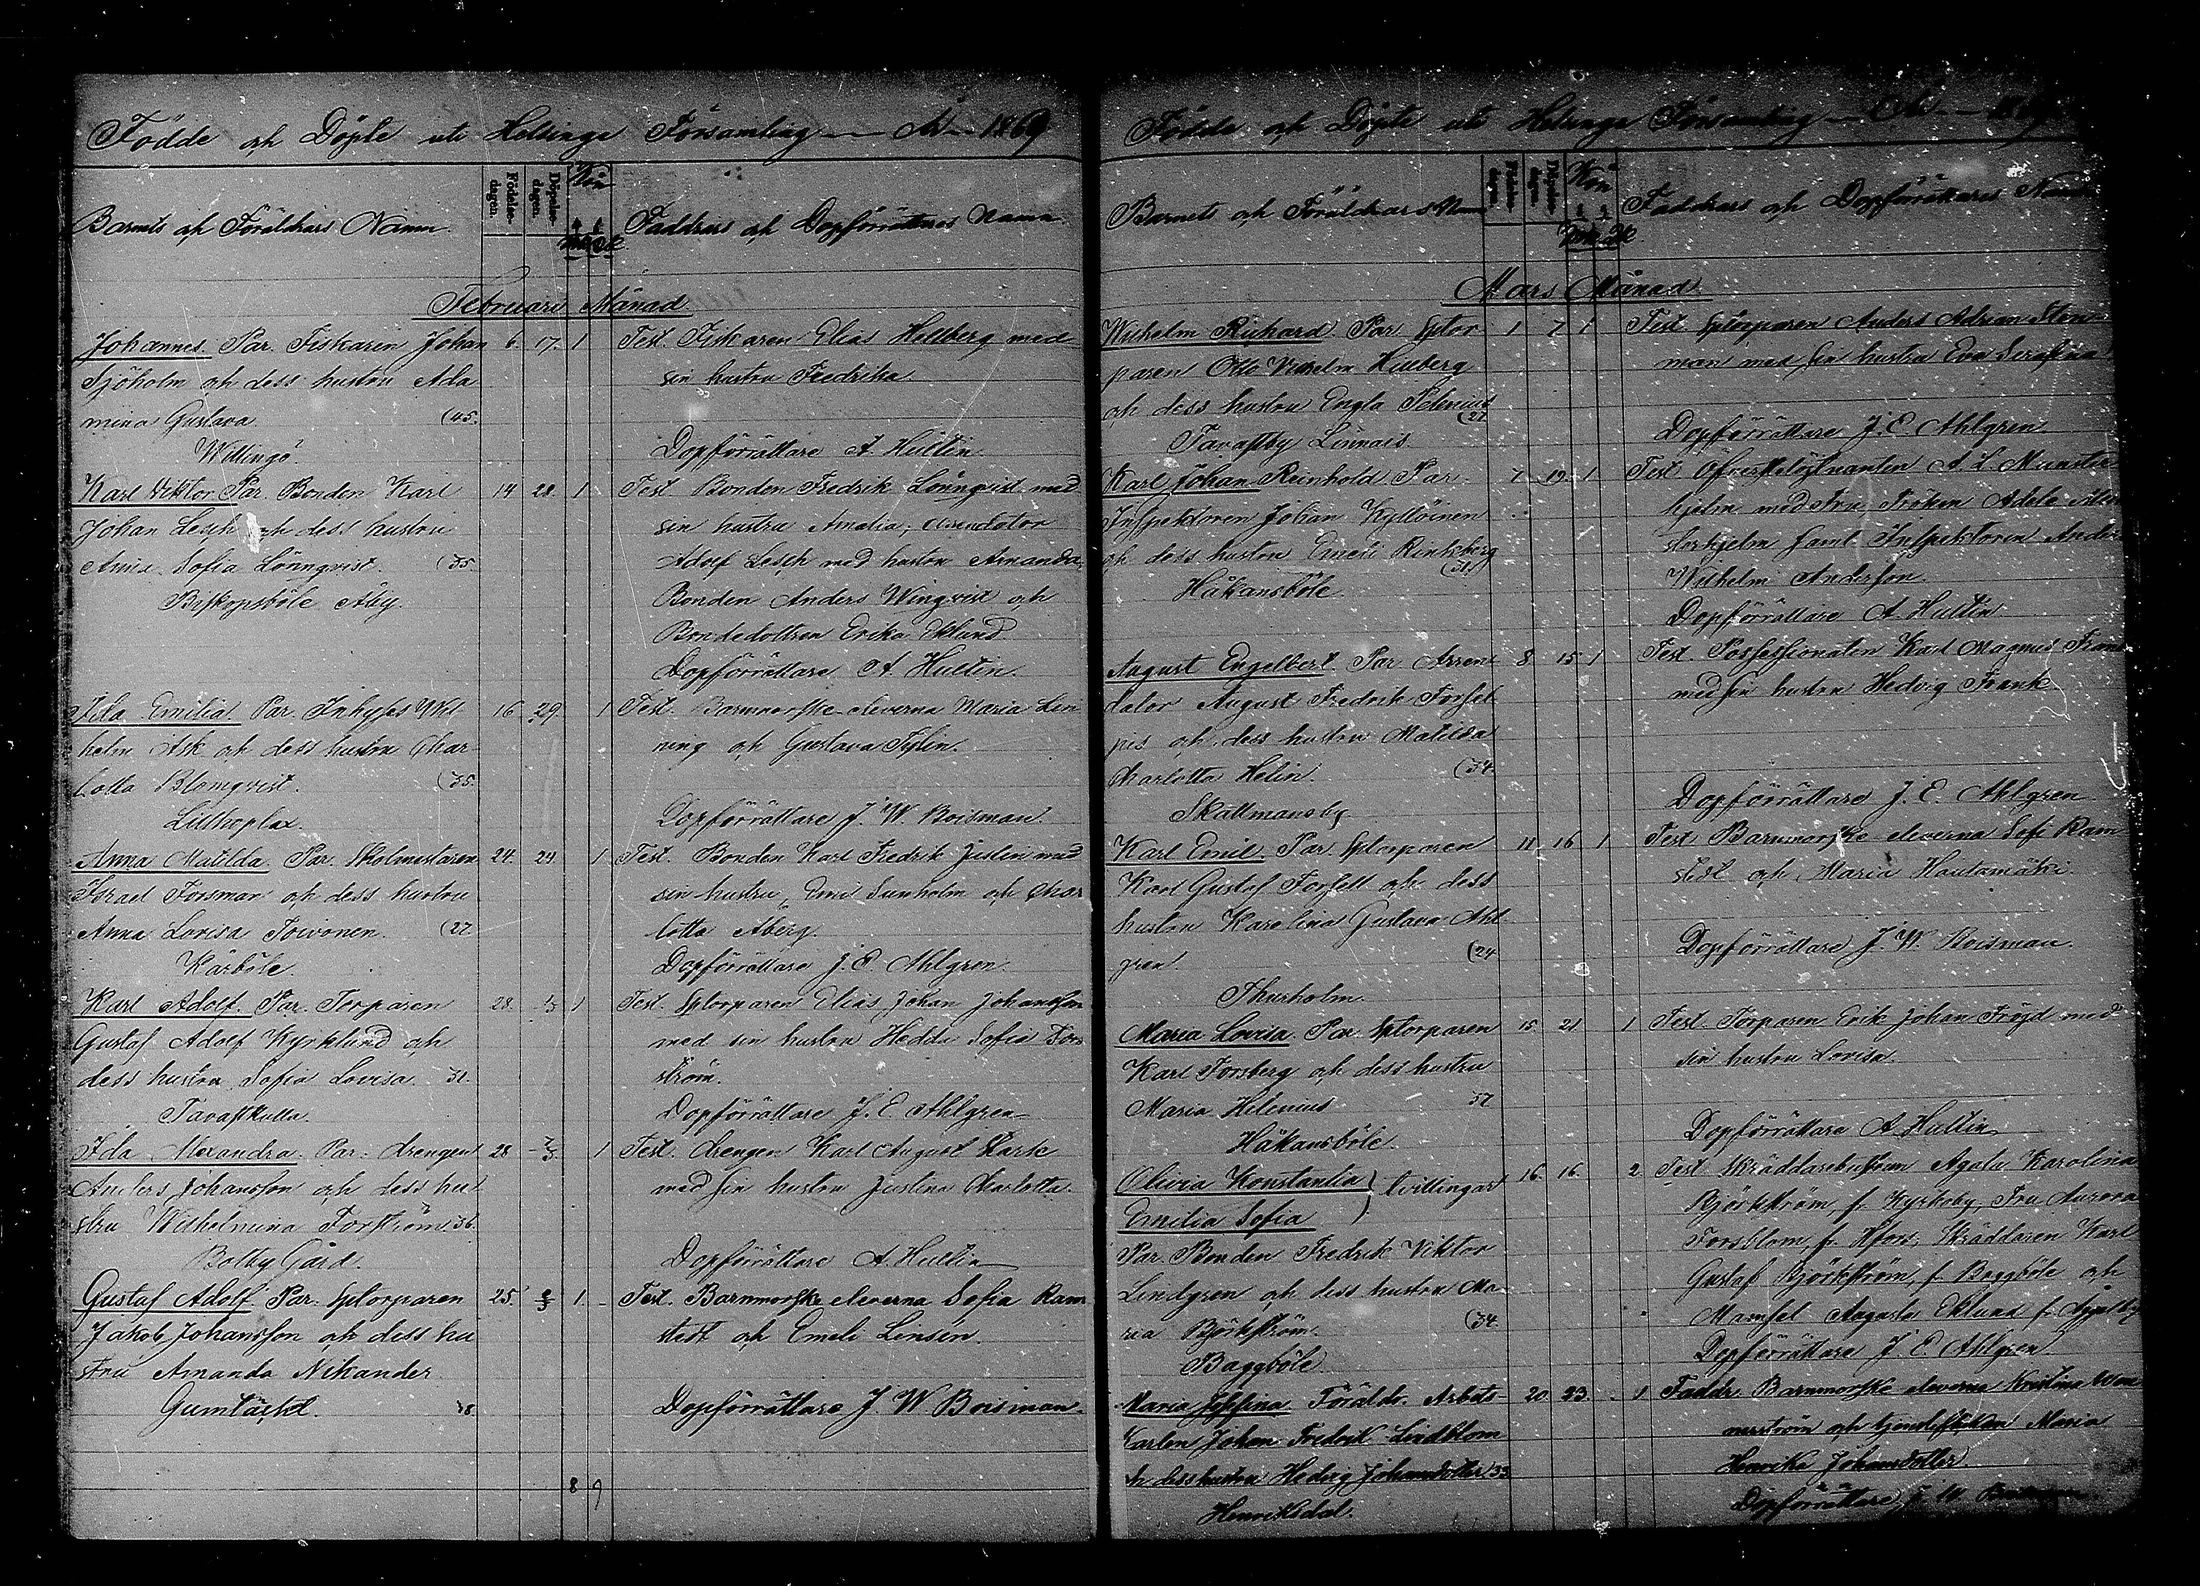 Födde och Döpte uti Helsinge Församling — År — 1869
Barnets och Föräldrars Namn
Födelse-dagen.
Döpelse-dagen.
Kön
Faddrars och Dopförrättares Namn
Februari Månad
Johannes. Par. Fiskaren Johan 6. 17. 1
Sjöholm och dess hustru Ada
mina Gustava (45.
Willingö.
Test. Fiskaren Elias Hellberg med
sin hustru Fredrika.
Dopförrättare A. Hultin
Karl Viktor Par. Bonden Karl 14 28 1
Johan Lesch och dess hustru
Anna Sofia Lönnqvist. (35
Biskopsböle Åby.
Test. Bonden Fredrik Lönnqvist med
sin hustru Amalia, Arendator
Adolf Lesch med hustru Amanda,
Bonden Anders Wingvist och
Bondedottren Erika Eklund
Dopförrättare A. Hultin.
Ida Emilia Par. Inhyses Wil 16 29 1
helm Ask och dess hustru Char
lotta Blomqvist. (35.
Test. Barnmorske eleverna Maria Len
ning och Gustava
Dopförrättare J. W. Boisman.
Anna Matilda Par. Skolmästaren 24. 24 1
Israel Forsman och dess hustru
Anna Lovisa Toivonen. (27
Kårböle.
Test. Bonden Karl Fredrik Juslin med
sin hustru, Emi Sunholm och Char
lotta Åberg.
Dopförrättare J. E. Ahlgren.
Karl Adolf. Par. Torparen 28. 1
Gustaf Adolf Kyrklund och
dess hustru Sofia Lovisa 31.
Tavastkulla.
Test. Sptorparen Elias Johan Johansson
med sin hustru Hedda Sofia Fors
ström.
Dopförrättare J. E Ahlgren
Ida Alexandra. Par. drengen 28 1
Anders Johansson och dess hu
stru Wilhelmina Forström 36.
Botby Gård.
Test. drengen Karl August Stark
med sin hustru Justina Charlotta.
Dopförrättare A. Hultin
Gustaf Adolf Par. Sptorparen 25. 1
Jakob Johansson och dess hu
stru Amanda Nikander
Gumtäckt. 38
Test. Barnmorske eleverna Sofia Ram
stedt och Emeli Linsén.
Dopförrättare J W Boisman.
8 9
Födde och Döpte uti Helsinge Församling — År —
Barnets och Föräldrars Namn
Kön
Faddrars och Dopförrättares Namn
Mars Månad
Wilhelm Richard. Par Sptor 1 7 1
paren Otto Wilhelm Hellberg
och dess hustru Engla Selenius (27
Tavastby Linnais
Test. Sptorparen Anders Adrian Sten
man med sin hustru Eva Serafina
Dopförrättare J. E. Ahlgren
Karl Johan Reinhold Par. 7 19 1
Inspektoren Johan Kyllöinen
och dess hustru Emeli Rinkberg (31.
Håkansböle
Test. Öfverstelöjtnanten A. L. Munster
hjelm med Fru Fröken Adele Mun
sterhjelm samt Inspektoren Ander
Wilhelm Andersson.
Dopförrättare A. Hultin
August Engelbert. Par Arren 8 15 1
dator August Fredrik Forsel
pes och dess hustru Matilda
Charlotta Helin. (34
Skattmansby
Test. Possessionaten Karl Magnus Frank
med sin hustru Hedvig Frank.
Dopförrättare J. E. Ahlgren
Karl Emil. Par. Sptorparen 11. 16 1
Karl Gustaf Forsell och dess
hustru Karolina Gustava Ahl
gren. (24
Thurholm.
Test Barnmorske eleverna Sofi Ram
stedt och Maria Hautamäki.
Dopförrättare J. W. Boisman.
Maria Lovisa. Par Sptorparen 15. 21 1
Karl Forsberg och dess hustru
Maria Helenius 37
Håkansböle.
Test. Torparen Erik Johan Fröjd med
sin hustru Lovisa.
Dopförrättare A. Hultin
Olivia Konstantia } tvillingar 16. 16 2
Emilia Sofia
Par. Bonden Fredrik Viktor
Lindgren och dess hustru Ma-
ria Björkström. (34.
Baggböle
Test. Skräddarehustrun Agata Karolina
Björkström, fr. Kyrkoby, Fru Aurora
Forsblom, fr. Hfors, Skräddaren Karl
Gustaf Björkström, fr. Baggböle och
Mamsel Augusta Eklund fr.
Dopförrättare J. E Ahlgren
Maria Josefina Föräldr. Arbets- 20. 23. 1
karlen Johan Fredrik Lindblom
och dess hustru Hedvig Johansdotter 33
Henriksdal.
Faddr. Barnmorske eleverna Kristina Wen
nerström och tjenstefickan Maria
Henrika Johansdotter
Dopförrättare J. W. Boisman.